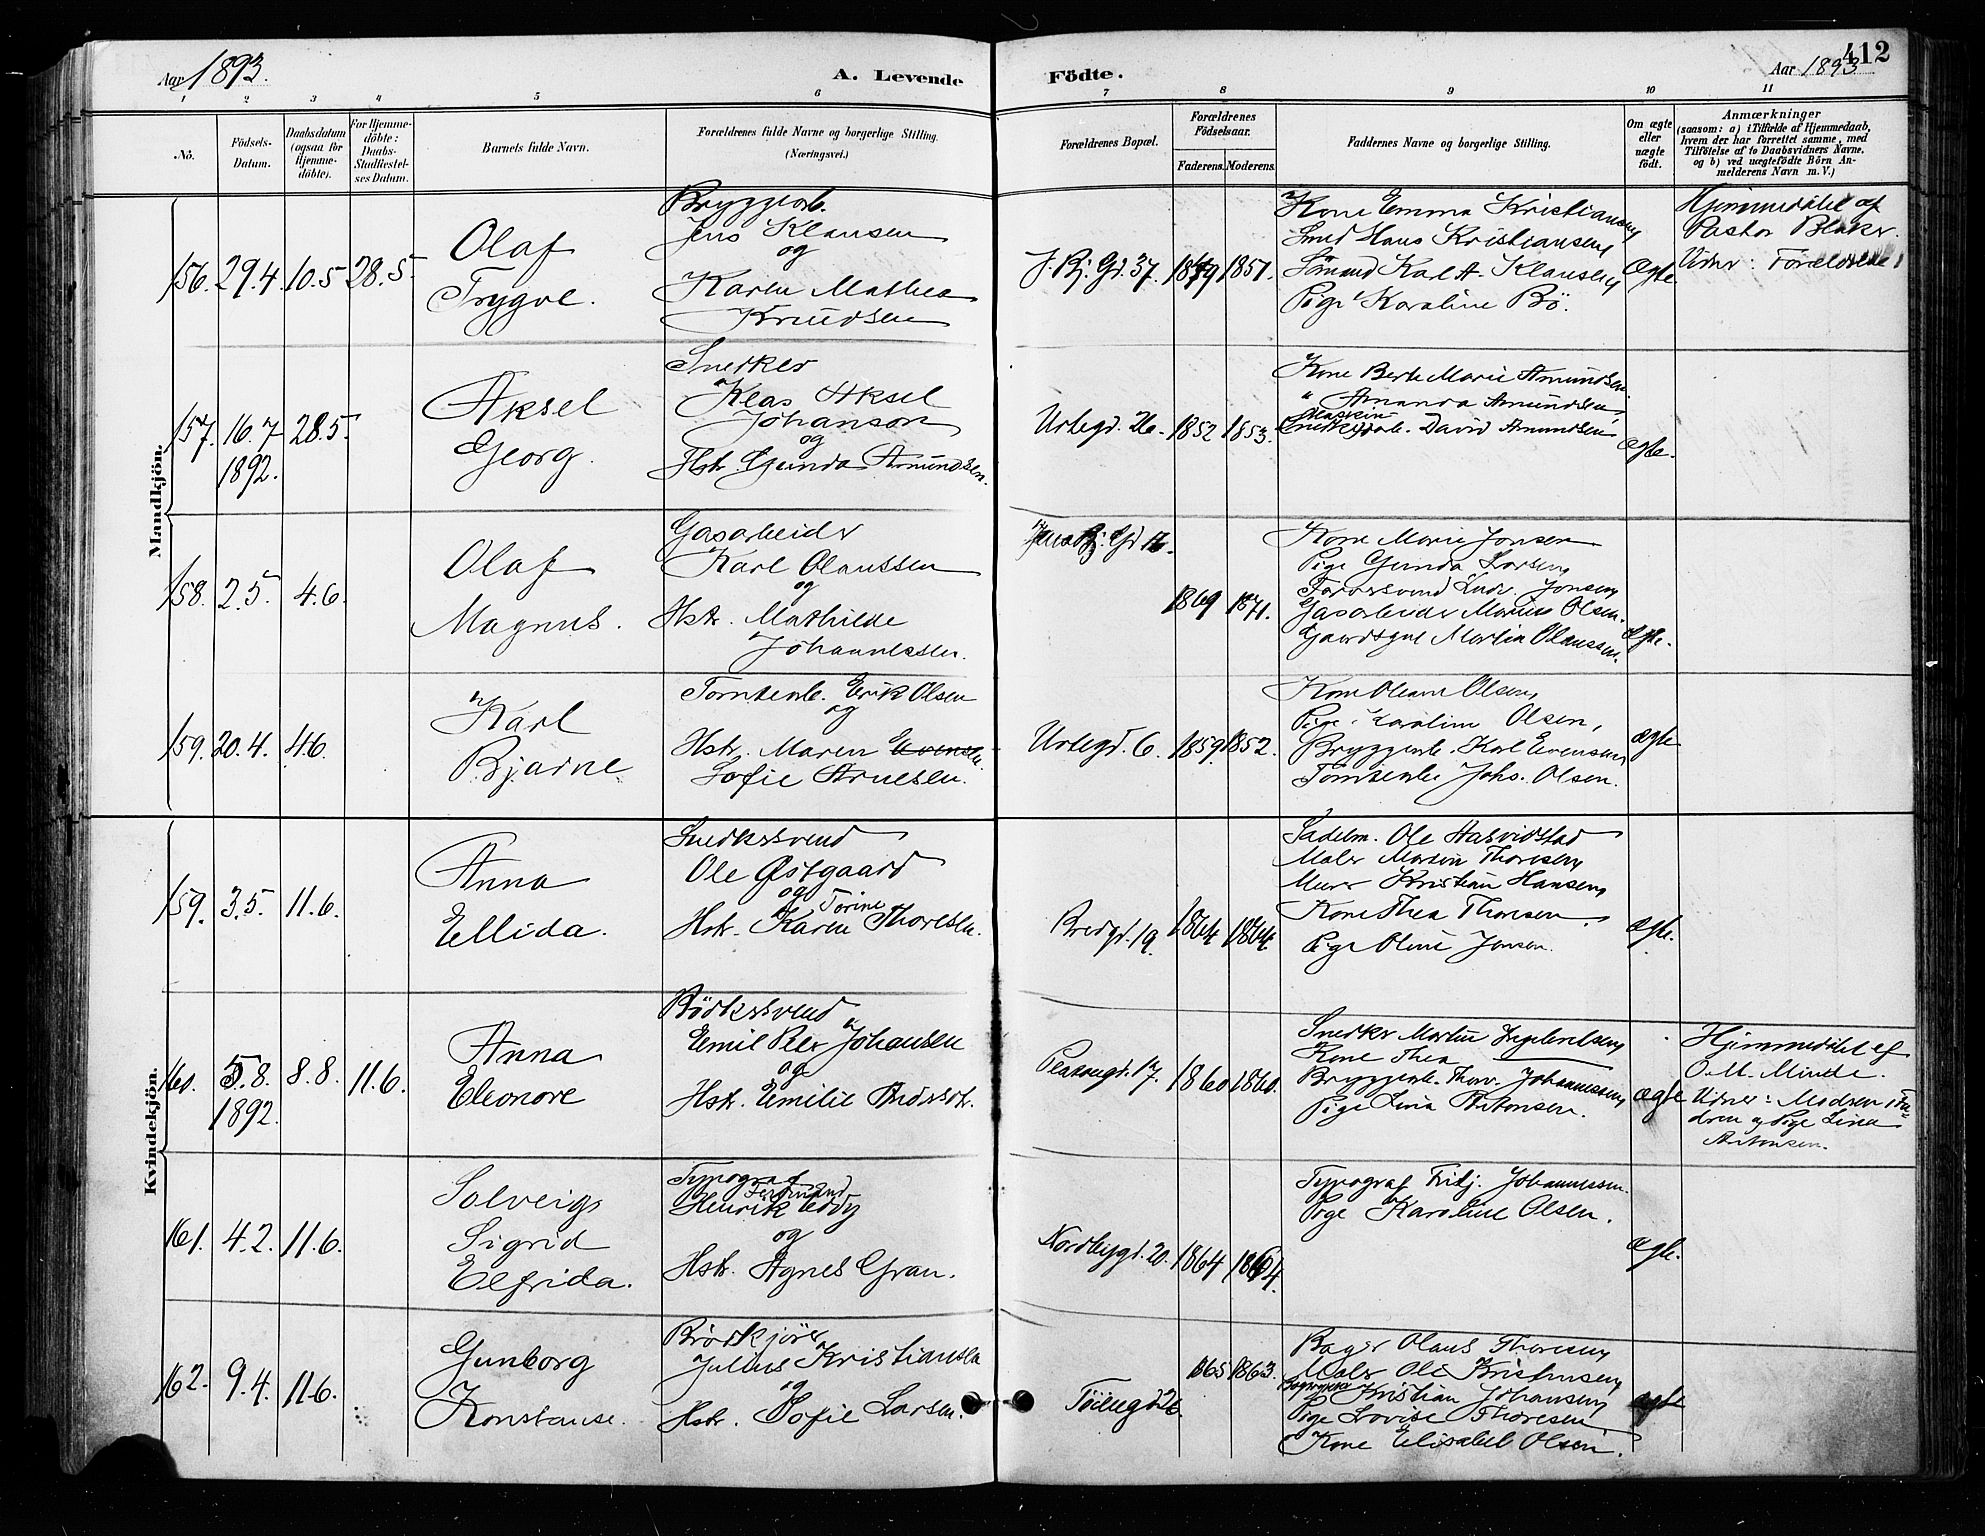 Aar 1893.
A. Levende
Födte.
Aar 1893
412
1 2 3 4 5 6 7 8 9 10 11
No.
Födsels-
Datum.
Daabsdatum
(ogsaa for
Hjemme-
döbte).
For Hjemme-
döbte:
Daabs-
Stadfæstel-
ses Datum.
Barnets fulde Navn.
Forældrenes fulde Navne og borgerlige Stilling.
(Næringsvei.)
Forældrenes Bopæl.
Forældrenes
Födselsaar.
Faderens. Moderens.
Faddernes Navne og borgerlige Stilling.
Om ægte
eller
uægte
födt.
Anmærkninger
(saasom: a) i Tilfælde af Hjemmedaab,
hvem der har forrettet samme, med
Tilföielse af to Daabsvidners Navne,
og b) ved uægtefödte Börn An-
melderens Navn m. V.)
Mandkjön.
156. 29.4. 10.5 28.5.
Olaf
Trygve.
Bryggearb.
Jens Klausen
og
Karen Mathea
Knudsen
J. Bj. Gd. 37. 1849 1851.
Kone Emma Kristiansen
Smed Hans Kristiansen,
Sömand Karl A. Klausen
Pige Karoline Bö.
Ægte.
Hjemmedöbt af
Pastor Blaker.
Vidner: Forældrene
157. 16.7 28.5.
1892.
Aksel
Georg.
Snedker
Klas Aksel
Johanson
og
Hstr. Gunda Amundsen.
Urtegd. 26. 1852 1853.
Kone Berte Marie Amundsen
" Amanda Amundsen,
Maskin
arb. David Amundsen
ægte.
158. 2.5. 4.6.
Olaf
Magnus.
Gasarbeider
Karl Olaussen
og
Hstr. Mathilde
Johannessen.
Jens Bj. Gd 16.
1869 1871.
Kone Marie Jonsen
Pige Gunda Larsen,
Farversvend Ludv. Jonsen,
Gasarbeider Marius Olsen.
Gaardsgut Martin Olaussen.
ægte.
159. 20.4. 4.6.
Karl
Bjarne
Tomtearb. Erik Olsen
og
Hstr. Maren Evensen
Sofie Arnesen.
Urtegd. 6. 1859. 1852.
Kone Oleane Olsen,
Pige Karoline Olsen,
Bryggearb. Karl Evensen
Tomtearb. Johs. Olsen.
ægte
Kvindekjön.
159. 3.5. 11.6.
Anna
Ellida.
Snedkersvend
Ole Østgaard
og Torine
Hstr. Karen Thoresen.
Bredgd. 19. 1864 1864.
Sadelm. Ole Hasvidstad
Maler Martin Thoresen,
Murer Kristian Hansen,
Kone Thea Thoresen,
Pige Oline Jonsen.
ægte.
160. 5.8. 8.8. 11.6.
1892.
Anna
Eleonore
Bödkersvend
Emil Peter Johansen
og
Hstr. Emilie Anderson.
Platougd. 17. 1860 1860.
Snedker Martin Ingebretsen,
Kone Thea
Bryggearb. Thorv. Johannessen,
Pige Lina Antonsen.
ægte
Hjemmedöbt af
O. M. Minde.
Vidner: Modren, Fa-
dren og Pige Lina
Antonsen.
161. 4.2. 11.6.
Solveig
Sigrid
Elfrida.
Typograf
Ferdinand
Henrik Eddy
og
Hstr. Agnes Gran.
Nordbygd. 20. 1864 1864.
Typograf Fritj. Johannessen.
Pige Karoline Olsen.
ægte.
162. 9.4. 11.6.
Gunborg
Konstanse.
Brödkjörer
Julius Kristiansen
og
Hstr. Sofie Larsen.
Töiengd 26. 1865 1863.
Bager Olaus Thoresen,
Maler Ole Kristensen,
Kristian Johansen,
Pige Lovise Thoresen
Kone Elisabet Olsen.
ægte